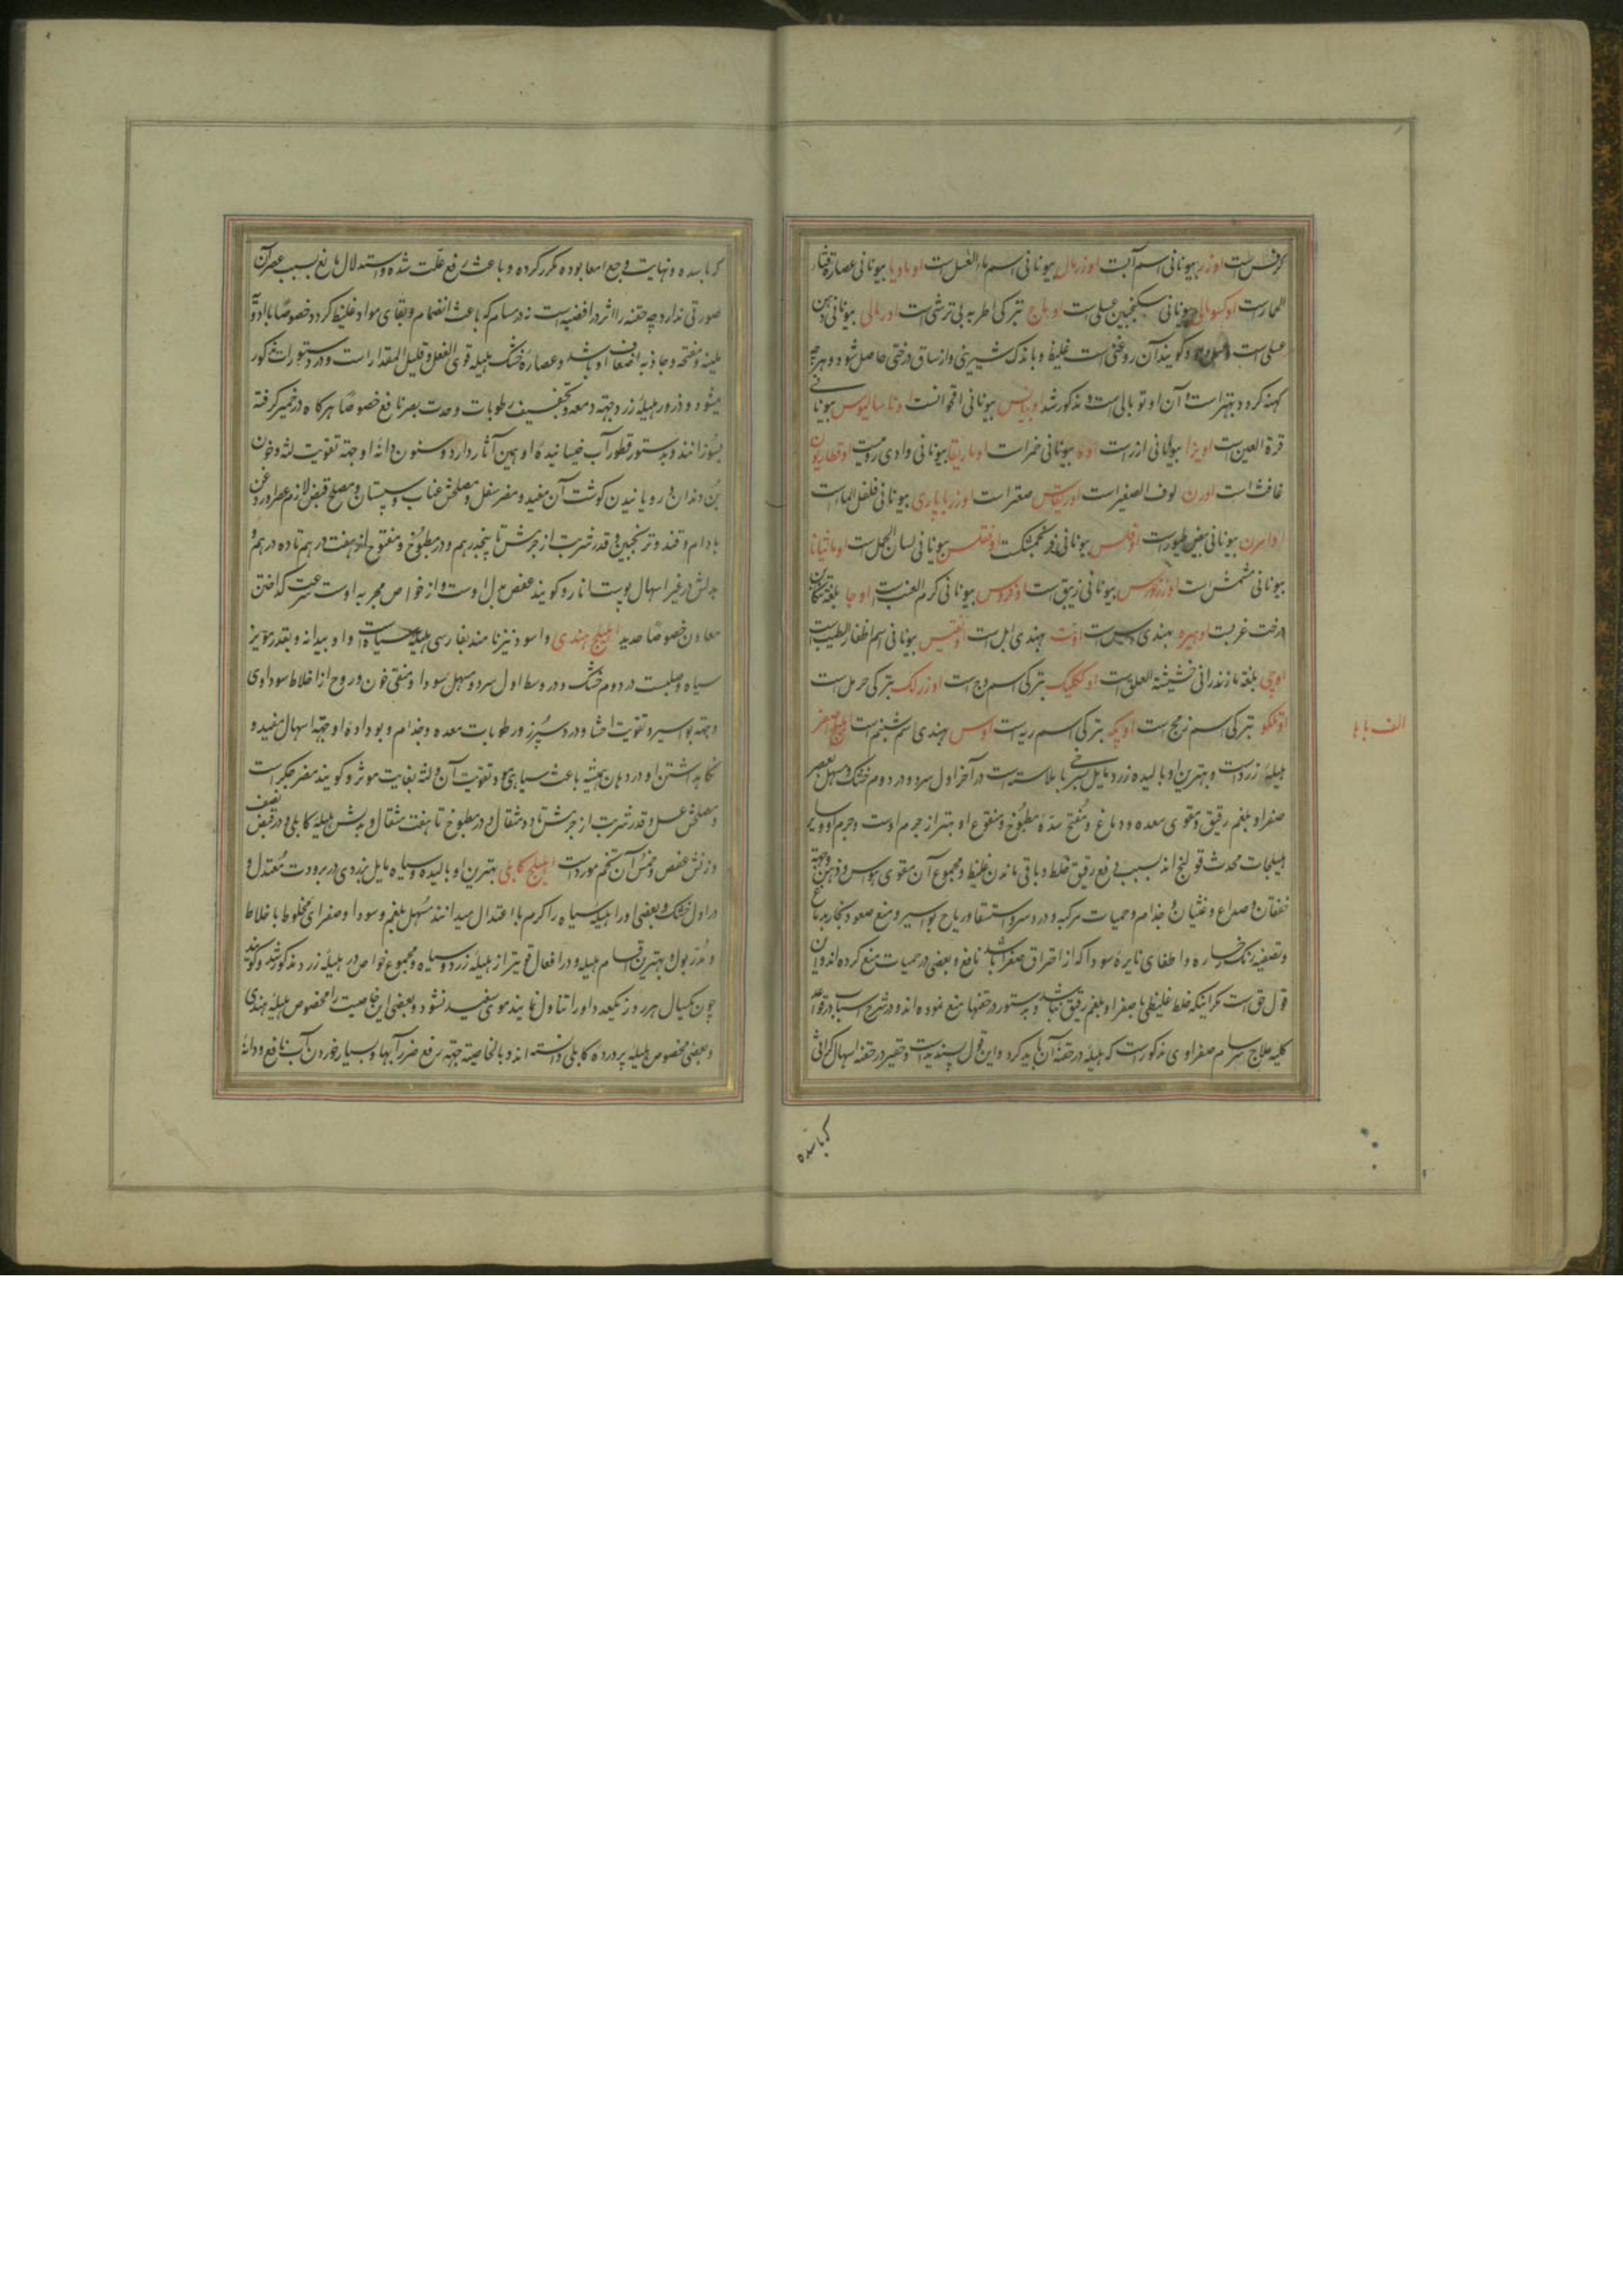 کرفس است اوزر بیونانی اسم آبست اوزرمالی بیونانی اسم ماء العسل است اومادیا بیونانی عصاره قثاء
الحمار است اوکسومالی بیونانی سکنجبین عسلی است اوماج بترکی اطریه بی ترشی است اورمالی بیونانی دهن
عسلی است و گویند آن روغنی است غلیظ و باندک شیرینی و از ساق درختی حاصل شود و هرچه
کهنه گردد بهتر است و آن اوتومالی است و مذکور شد اوبیانس بیونانی اقحوانست وناسالیوس بیونانی
قرة العین است اویزا بیونانی ارز است بیونانی خمر است اوماریقا بیونانی وادی رومیست اوفطاریون
غافث است اورن لوف الصغیر است اوریقاس صعتر است اوزرباباری بیونانی فلفل الماء است
اوامرن بیونانی بیض طیور است اوفلس بیونانی فنجنکشت اوفقلس بیونانی لسان الحمل است اومانیانا
بیونانی مشمش است اوزرورس بیونانی زیبق است اوفروس بیونانی کرم العنب است اوجا بلغة تنکابن
درخت غربست اوهیره بهندی است اوت بهندی ابل است اونقیس بیونانی اسم اظفار الطیب است
اوجی بلغة مازندرانی حشیشة العلق است اوکلکلیک بترکی اسم وج است اوزرلک بترکی حرمل است
اوتلکو بترکی اسم زمج است اوپکه بترکی اسم ریه است اوس بهندی اسم شبنم است اهلیلج اصفر
الف با ها
هلیلهٔ زرد است و بهترین او بالیده زرد مایل بسرخی با ملاست است در آخر اول سرد و در دوم خشک و مسهل بعصر
صفرا و بلغم رقیق و مقوی معده و دماغ و مفتح سده و مطبوخ و منقوع او بهتر از جرم اوست و جرم او و سایر
هلیلجات محدث قولنج اند بسبب دفع رقیق خلط و باقی ماندن غلیظ و مجموع آن مقوی حواس و ذهن و جهة
خفقان و صداع و غثیان و جذام و حمیات مرکبه و درد سر و استسقا و ریاح بواسیر و منع صعود بخار بدماغ
و تصفیه رنک رخساره و اطفای نایره سودا که از احتراق صفرا باشد نافع و بعضی در حمیات منع کرده اند و این
قول حق است مگر اینکه خلط غلیظی با صفرا و بلغم رقیق نباشد و بدستور در حقنها منع نموده اند و در شرح اسباب در قواعد
کلیه علاج سرسام صفراوی مذکور است که هلیله در حقنه آن باید کرد و این قول پسندیده است و حقیر در حقنه اسهال کراثی
کرباسده
کرباسده و نهایت وجع امعا بوده مکرر کرده و باعث رفع علت شده و استدلال مانع بسبب عصر آن
صورتی ندارد چه حقنه را اثر در افضیه است نه در مسام که باعث انضمام و بقای مواد غلیظ گردد خصوصاً با ادویه
ملینه و مفتحه و جاذبه اضعاف او باشد و عصاره خشک هلیله قوی الفعل و قلیل المقدار است و در دستورات مذکور
میشود و ذرور هلیلهٔ زرد جهة دمعه و تجفیف رطوبات و حدت بصر نافع خصوصاً هر گاه در خمیر گرفته
بسوزانند و بدستور قطور آب خیسانیده او همین آثار دارد و سنون دانهٔ او جهة تقویت لثه و خون
بن دندان و رویانیدن گوشت آن مفید و مضر سفل و مصلحش عناب و سپستان و مصلح قبض لازم عصر او روغن
بادام و قند و ترنجبین و قدر شربت از جرمش تا پنجدرهم و در مطبوخ و منقوع از هفت درهم تا ده درهم و
بدلش در غیر اسهال پوست انار و گویند عفص بدل اوست و از خواص مجربه اوست سرعت گداختن
معادن خصوصاً حدید اهلیلج هندی و اسود نیز نامند بفارسی هلیله سیاه است و او بیدانه و بقدر مویز
سیاه و صلبست در دوم خشک و در وسط اول سرد و مسهل سودا و منقی خون و روح از اخلاط سوداوی
و جهة بواسیر و تقویت احشا و درد سپرز و رطوبات معده و جذام و بو داده او جهة اسهال مفید و
نگاهداشتن او در دهان همیشه باعث سیاهی مو و تقویت آن و لثه بغایت موثر و گویند مضر جگر است
و مصلحش عسل و قدر شربت از جرمش تا دو مثقال و در مطبوخ تا هفت مثقال و بدلش هلیلهٔ کابلی و در قبض نصف
وزنش عفص و خمس آن تخم مورد است اهلیلج کابلی بهترین او بالیده و سیاه مایل بزردی در برودت معتدل و
در اول خشک و بعضی او را و هلیلهٔ سیاه را گرم با اعتدال میدانند مسهل بلغم و سودا و صفرای مخلوط با خلاط
و مدر بول و بهترین اقسام هلیله و در افعال قویتر از هلیلهٔ زرد و سیاه و مجموع خواص در هلیلهٔ زرد مذکور شد و گویند
چون یکسال هر روز یکعدد او را تناول نمایند موی سفید نشود و بعضی این خاصیت را مخصوص هلیلهٔ هندی
و بعضی مخصوص هلیله پرورده کابلی دانسته اند و بالخاصیته جهة رفع ضرر آبها و بسیار خوردن آب نافع و دانهٔ